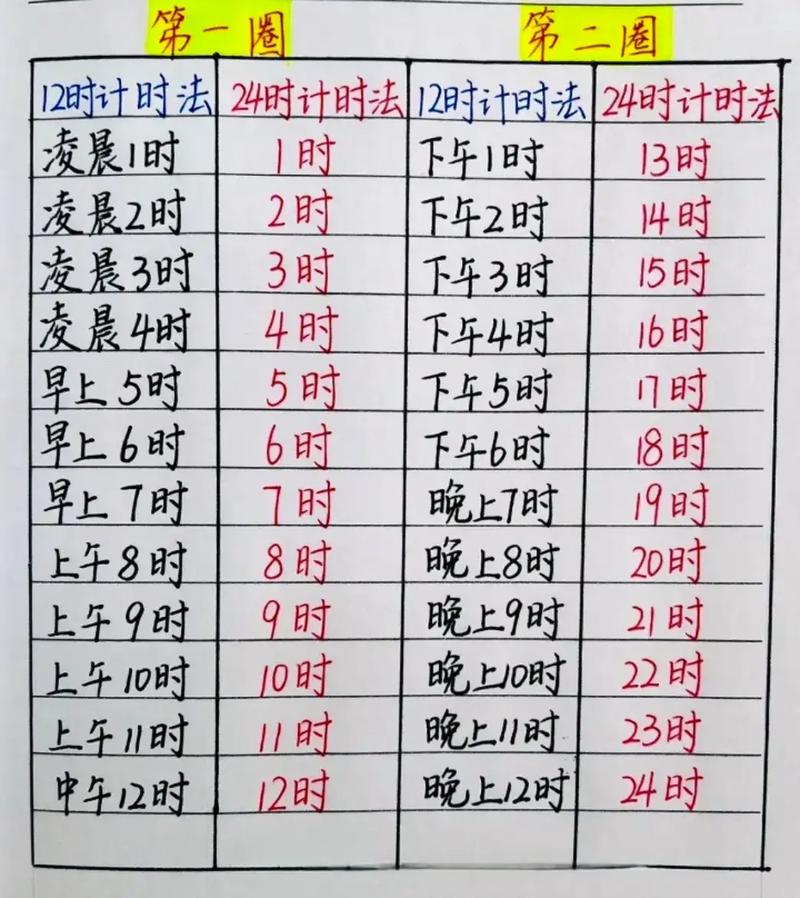 第一圈 第二圈
12时计时法 24时计时法 12时计时法 24时计时法
凌晨1时 1时 下午1时 13时
凌晨2时 2时 下午2时 14时
凌晨3时 3时 下午3时 15时
凌晨4时 4时 下午4时 16时
早上5时 5时 下午5时 17时
早上6时 6时 下午6时 18时
早上7时 7时 晚上7时 19时
上午8时 8时 晚上8时 20时
上午9时 9时 晚上9时 21时
上午10时 10时 晚上10时 22时
上午11时 11时 晚上11时 23时
中午12时 12时 晚上12时 24时